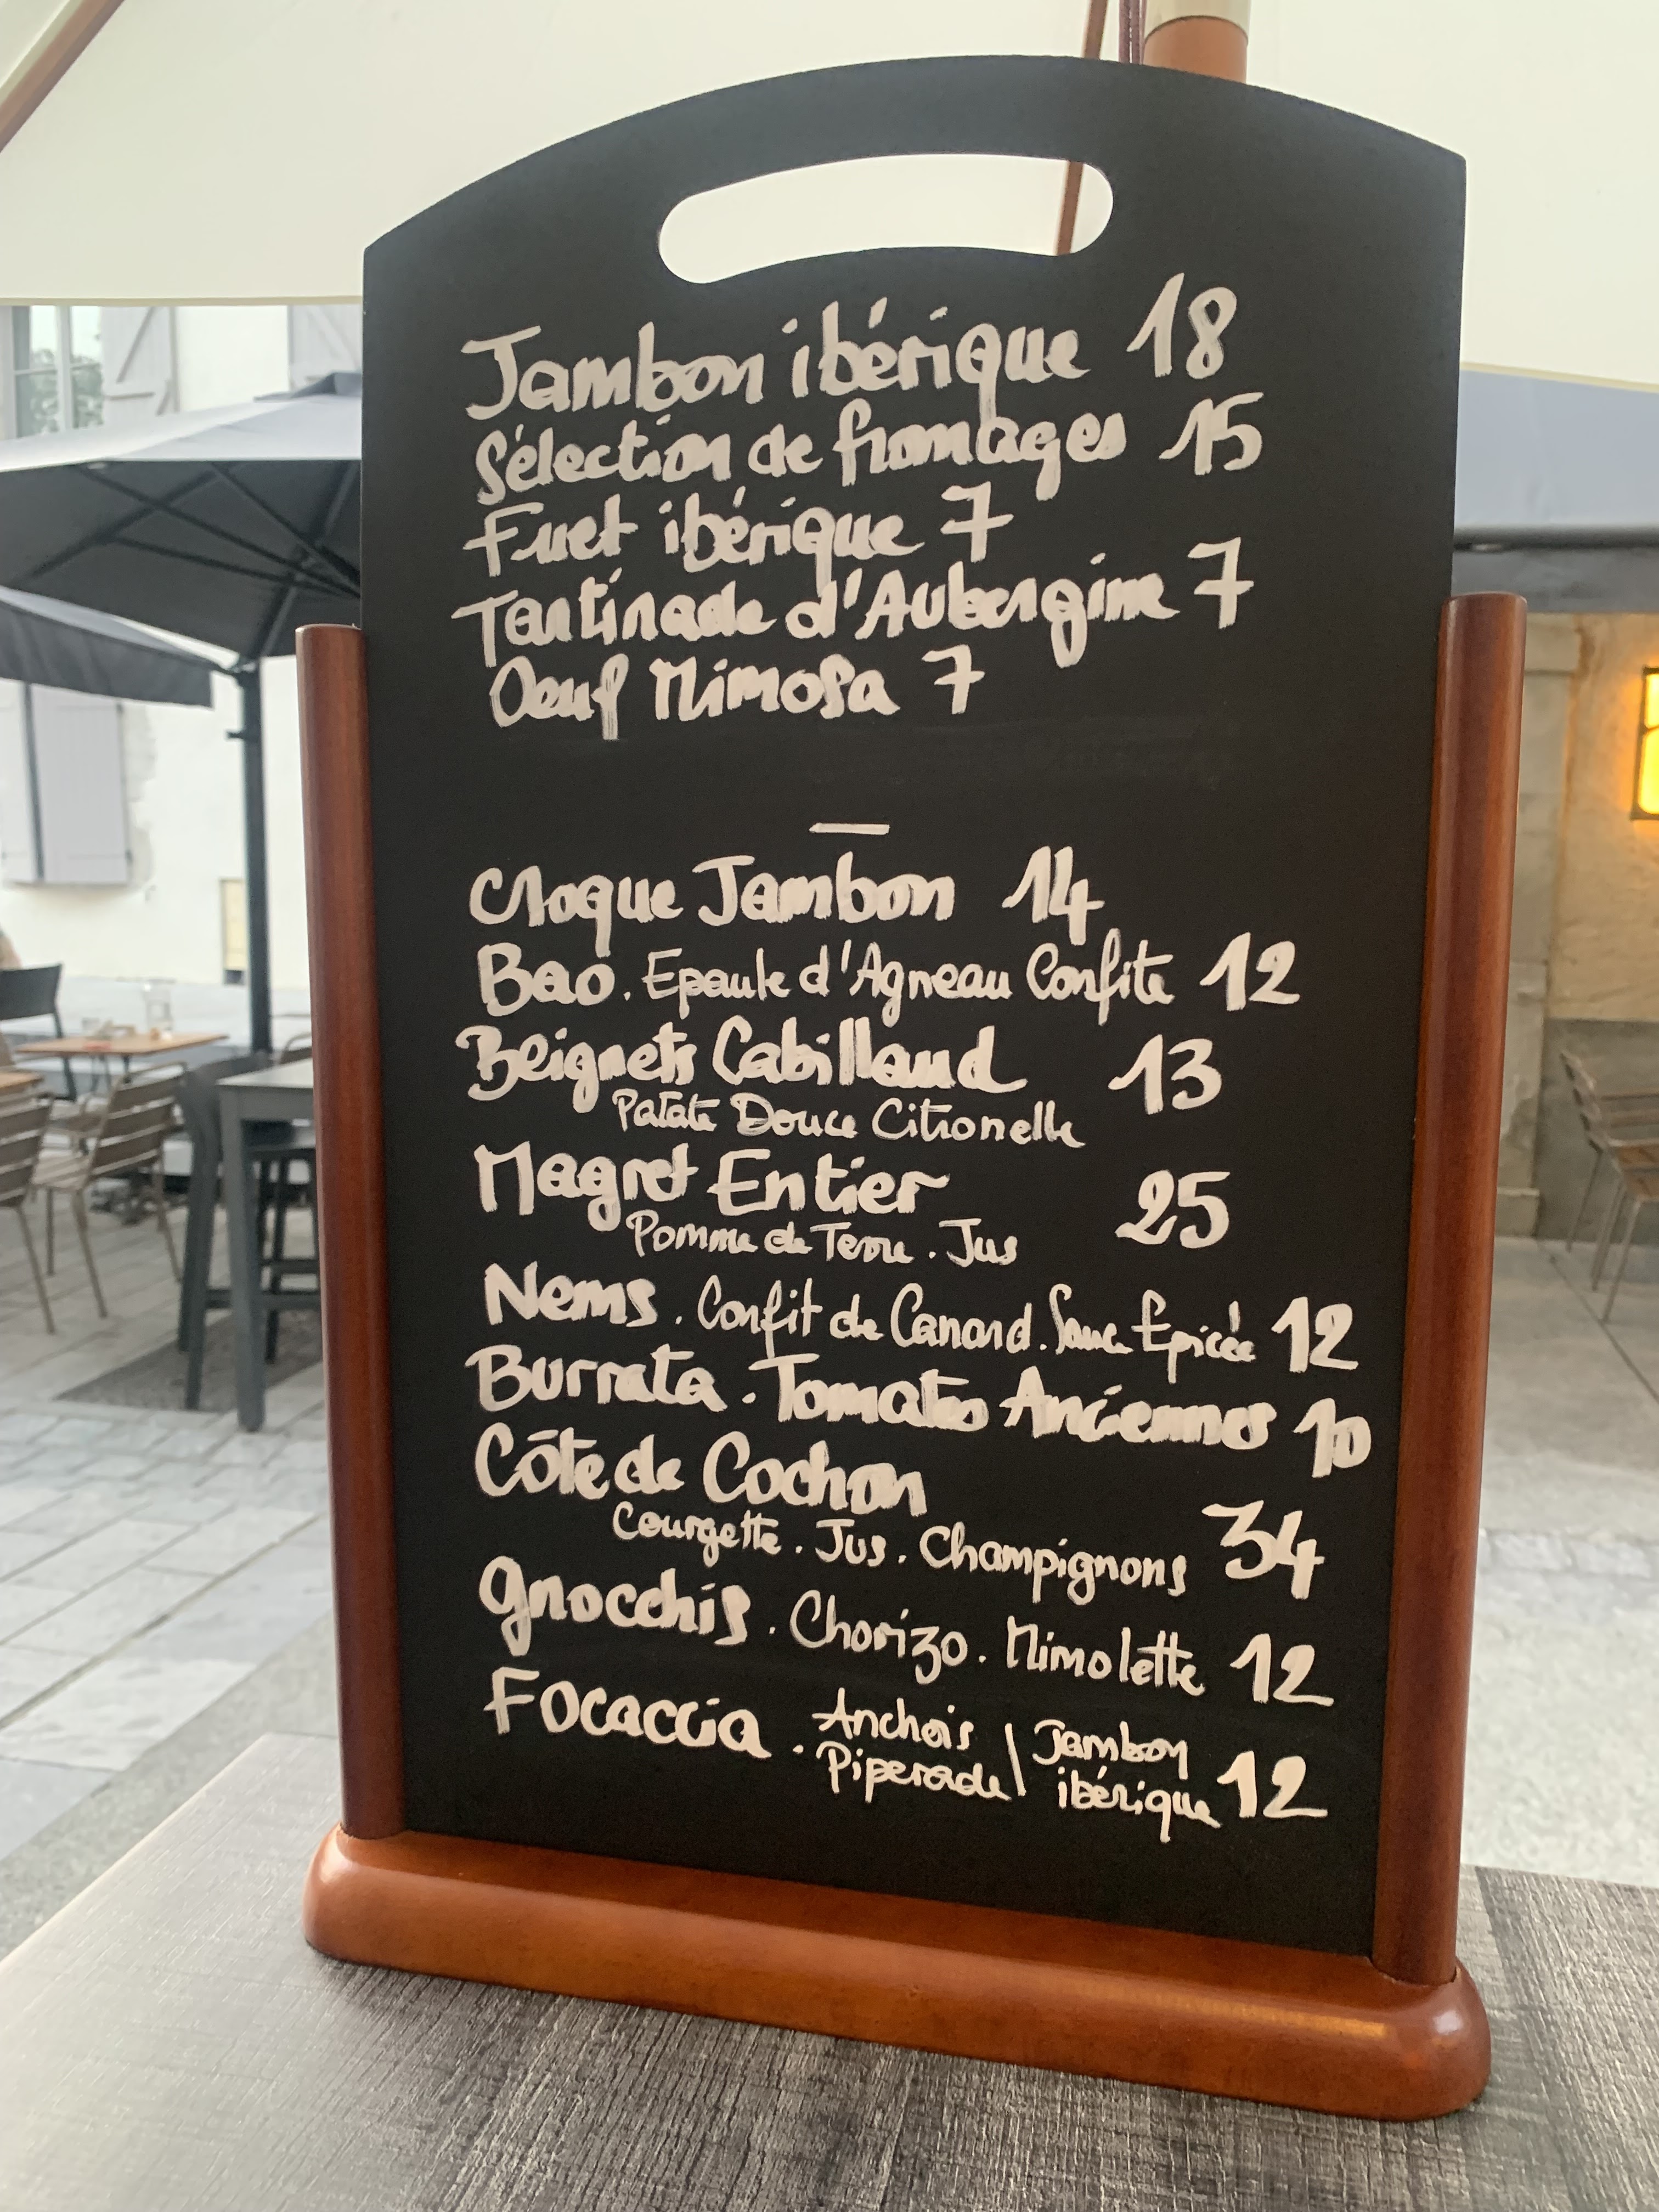 Jambon ibérique 18
Sélection de fromages 15
Fuet ibérique 7
Tartinade d'Aubergine 7
Oeuf Mimosa 7
—
Croque Jambon 14
Bao. Epaule d'Agneau Confite 12
Beignets Cabillaud 13
Patate Douce Citronelle
Magret Entier 25
Pomme de Terre. Jus
Nems. Confit de Canard. Sauce Epicée 12
Burrata. Tomates Anciennes 10
Côte de Cochon
Courgette. Jus. Champignons 34
Gnocchis. Chorizo. Mimolette 12
Focaccia. Anchois Piperade / Jambon ibérique 12